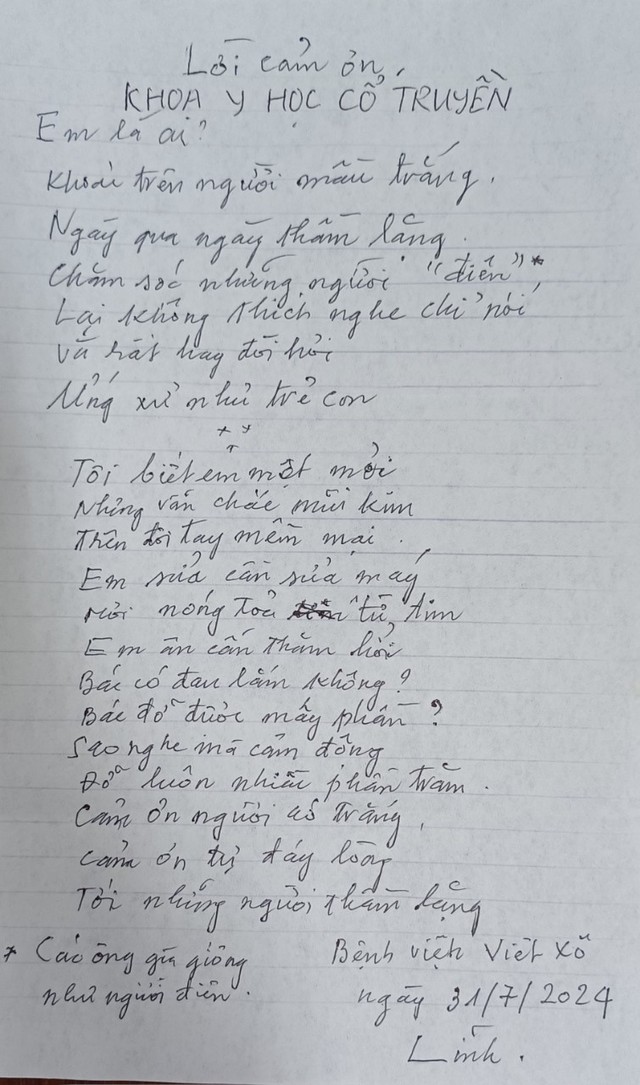 Lời cảm ơn,
KHOA Y HỌC CỔ TRUYỀN
Em là ai?
Khoác trên người màu trắng.
Ngày qua ngày thầm lặng.
Chăm sóc những người "điên"*,
Lại không thích nghe chỉ nói
Và rất hay đòi hỏi
Ứng xử như trẻ con
* * *
Tôi biết em mệt mỏi
Nhưng vẫn chắc mũi kim
Trên đôi tay mềm mại.
Em sửa cần sửa máy
Hơi nóng toả từ tim
Em ân cần thăm hỏi
Bác có đau lắm không?
Bác đỡ được mấy phần?
Sao nghe mà cảm động
Đỡ luôn nhiều phần trăm.
Cảm ơn người áo trắng,
Cảm ơn từ đáy lòng
Tới những người thầm lặng
* Các ông già giống
như người điên.
Bệnh viện Việt Xô
ngày 31/7/2024
Linh.